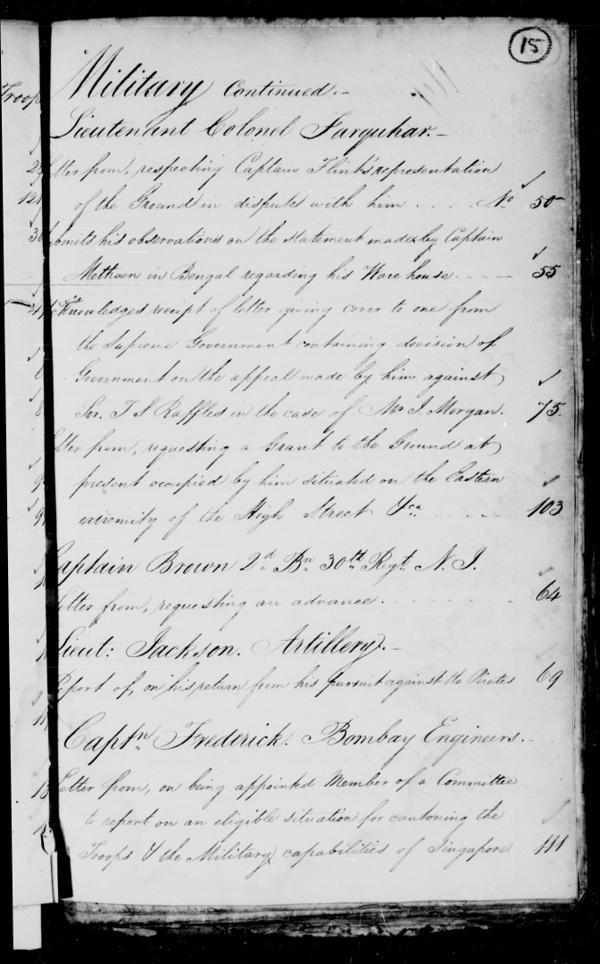 15
Military Continued.-
Lieutenant Colonel Farquhar.-
Letter from, respecting Captain Flint's representation
of the Ground in dispute with him . . . . No 50
Submits his observations on the statement made by Captain
Methven in Bengal regarding his Ware house . . . 55
Acknowledges receipt of letter giving cover to one from
the Supreme Government containing decision of
Government on the appeal made by him against
Sir. T S Raffles in the case of Mr J. Morgan. 75
Letter from, requesting a Grant to the Ground at
present occupied by him situated on the Eastern
extremity of the High Street &ca . . . . 103
Captain Brown 2d Bn 30th Regt N. I.
Letter from, requesting an advance . . . . . . . 64
Lieut: Jackson. Artillery.-
Report of, on his return from his pursuit against the Pirates 69
Captn Frederick. Bombay Engineers.-
Letter from, on being appointed Member of a Committee
to report on an eligible situation for cantoning the
Troops & the Military capabilities of Singapore 111
Troops